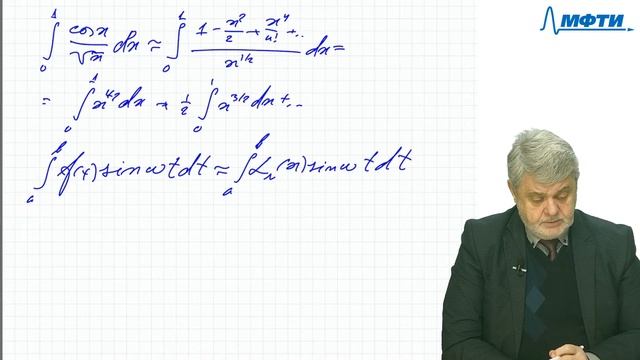 МФТИ
∫₀¹ cosx/√x dx ≈ ∫₀¹ (1 - x²/2 + x⁴/4! + ..)/x^{1/2} dx =
= ∫₀¹ x^{1/2} dx + 1/2 ∫₀¹ x^{3/2} dx + ..
∫ₐᵇ f(x) sin ω t dt ≈ ∫ₐᵇ Lₙ(x) sin ω t dt